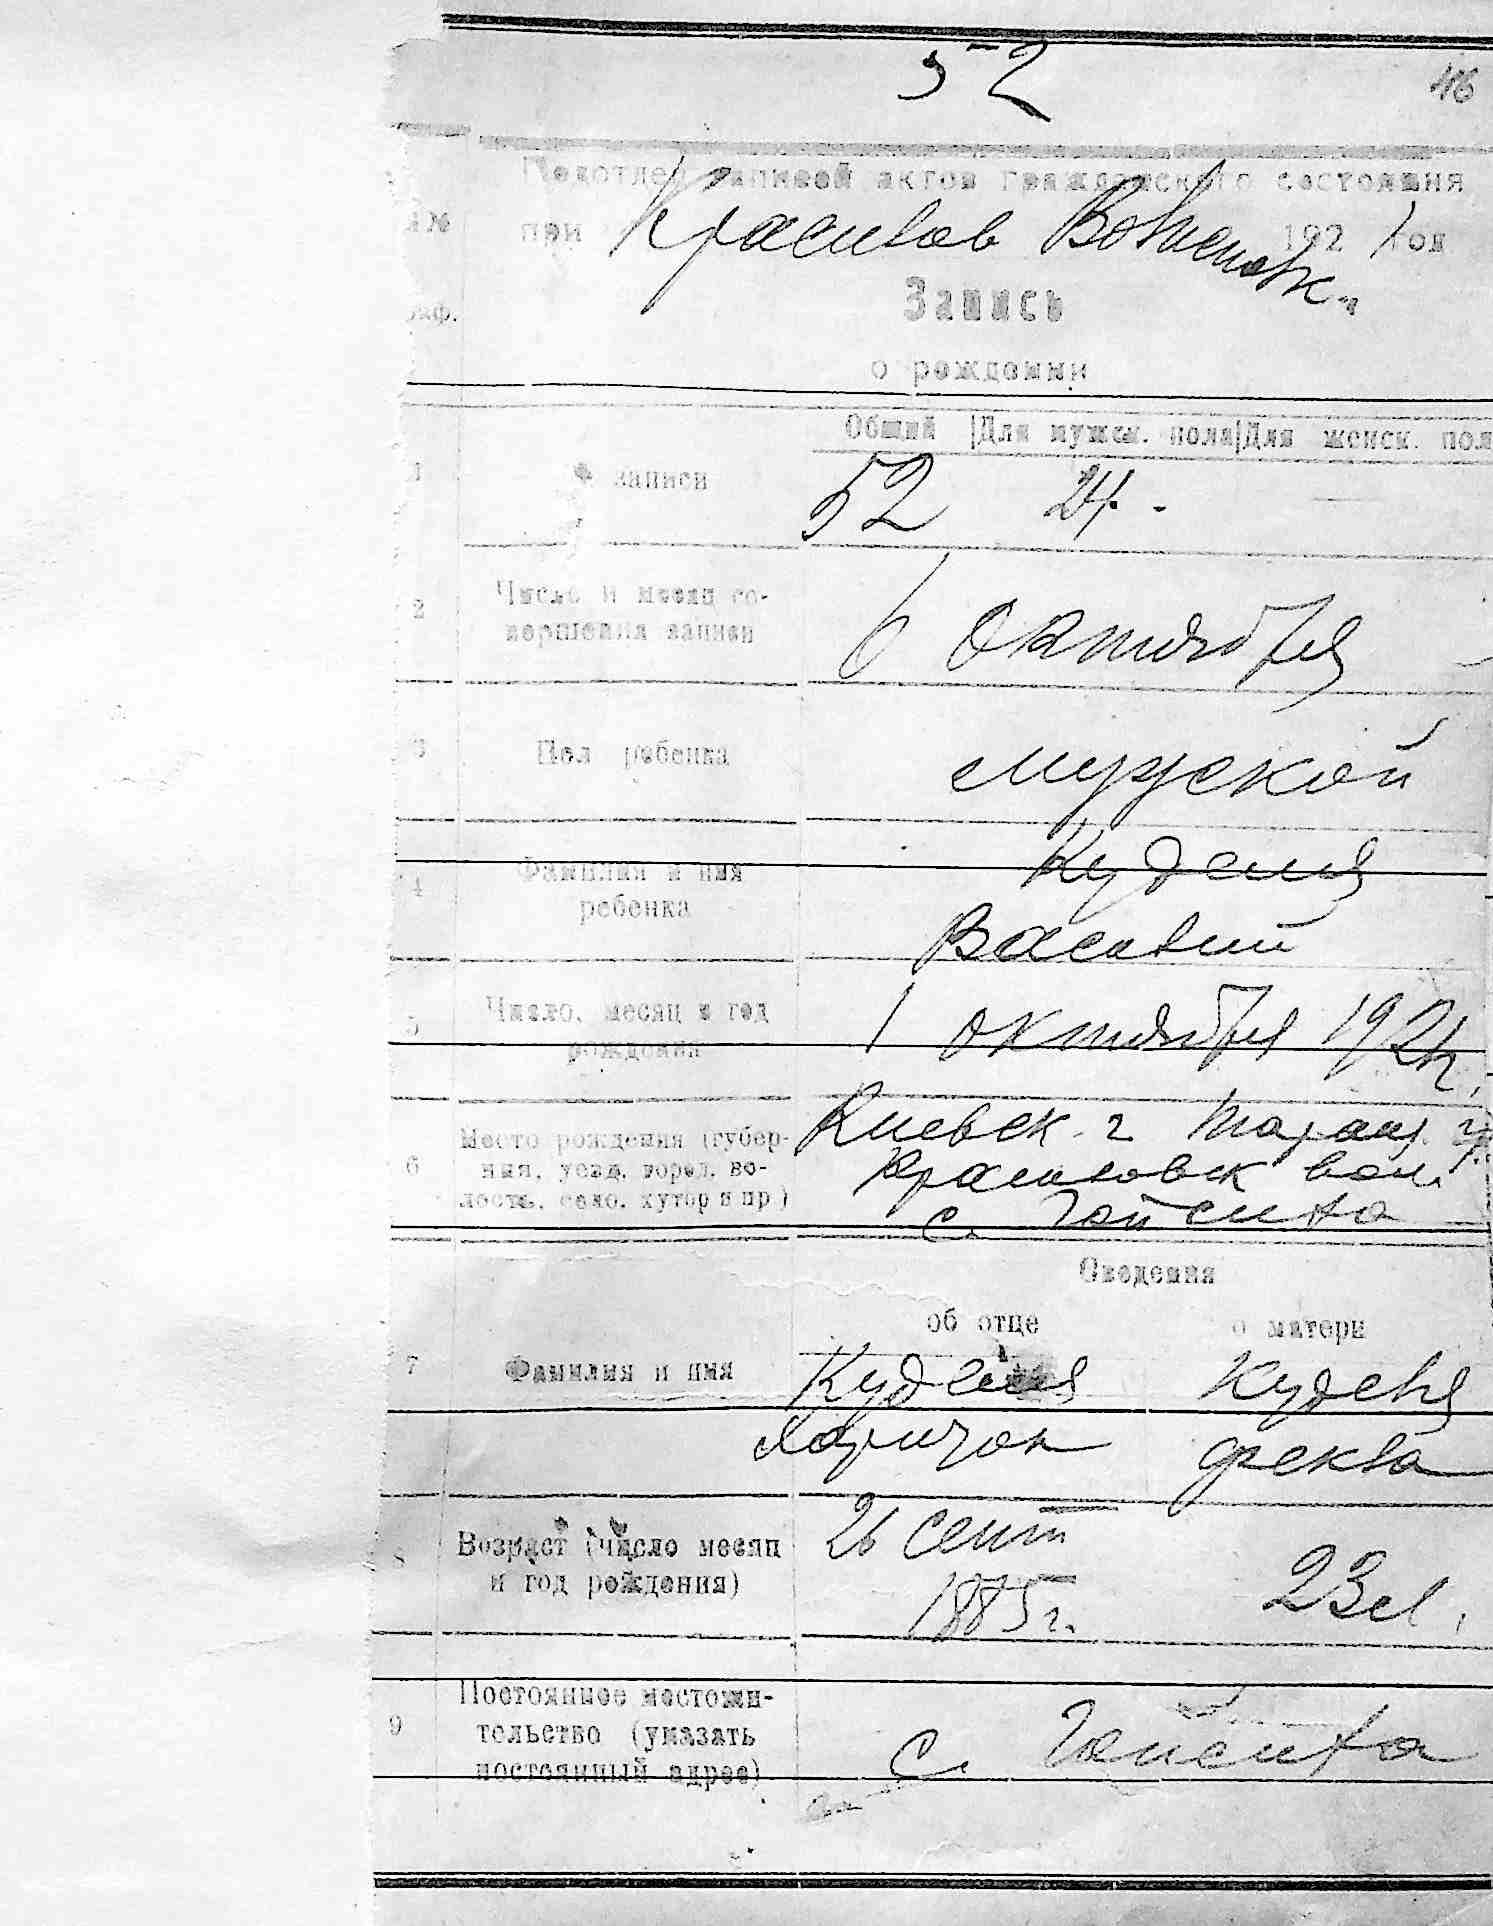 52
46
Подотдел записей актов гражданского состояния
№
при Красилов Волисполк. 1921 год
Запись
о рождении
Общий | Для мужск. пола | Для женск. пол
1 № записи 52 24. —
2 Число и месяц со-
вершения записи 6 октября
3 Пол ребенка мужской
4 Фамилия и имя
ребенка
Василий
5 Число, месяц и год
рождения 1 октября 192
6 Место рождения (губер-
ния, уезд, город, во-
лость, село, хутор и пр)
Киевск. г Таращ. у.
вол.
с. Гайсиха
Сведения
об отце о матери
7 Фамилия и имя
Харитон Фекла
8 Возраст (число месяц
и год рождения)
26 сент
1885 г. 23 л.
9 Постоянное местожи-
тельство (указать
постоянный адрес)
с.